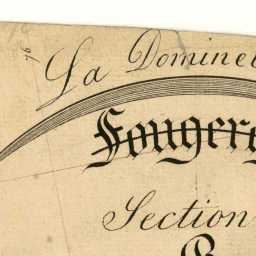 76
La Domine
Fougere
Section